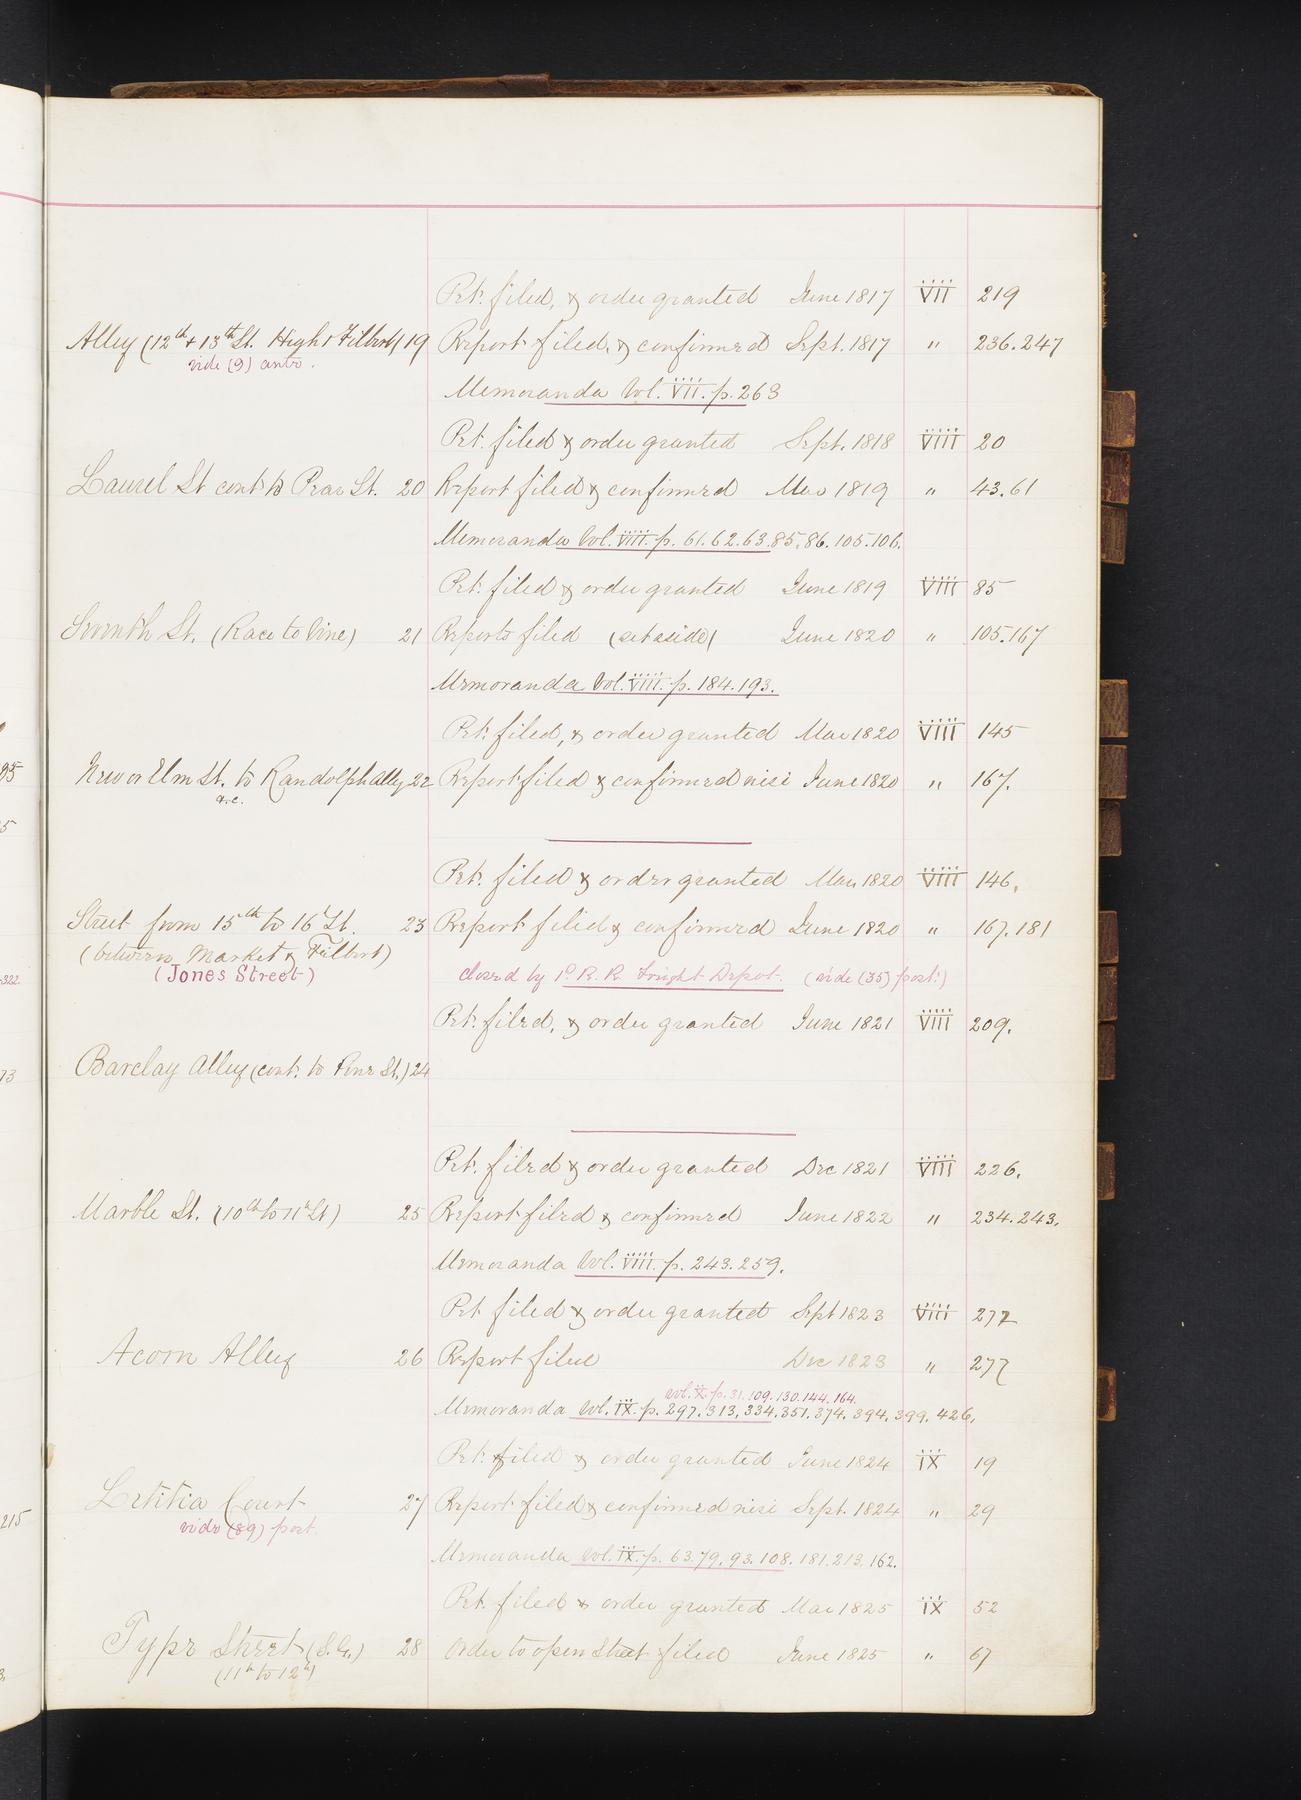 Pet. filed, & order granted June 1817 VII 219
Alley (12th & 13th St. High & Filbert) 19 Report filed, & confirmed Sept. 1817 " 236.247
vide (9) ante.
Memoranda Vol. VII. p. 263
Pet. filed & order granted Sept. 1818 VIII 20
Laurel St cont. to Pear St. 20 Report filed & confirmed Mar 1819 " 43.61
Memoranda Vol. VIII. p. 61.62.63.85.86.105.106.
Pet. filed & order granted June 1819 VIII 85
Seventh St. (Race to Vine) 21 Reports filed (set aside) June 1820 " 105.167
Memoranda Vol. VIII. p. 184.193.
Pet. filed, & order granted Mar 1820 VIII 145
New or Elm St. to Randolph Alley 22 Report filed & confirmed nisi June 1820 " 167.
&c.
Pet. filed & order granted Mar 1820 VIII 146.
Street from 15th to 16th St. 23 Report filed & confirmed June 1820 " 167.181
(between Market & Filbert)
(Jones Street) closed by Pa R. R. Freight Depot. (vide (35) post.)
Pet. filed, & order granted June 1821 VIII 209.
Barclay Alley (cont. to Pine St.) 24
Pet. filed & order granted Dec 1821 VIII 226.
Marble St. (10th to 11th St) 25 Report filed & confirmed June 1822 " 234.243.
Memoranda Vol. VIII. p. 243.259.
Pet filed & order granted Sept 1823 VIII 272
Acorn Alley 26 Report filed Dec 1823 " 277
Vol. X. p. 31.109.130.144.164.
Memoranda Vol. IX. p. 297.313.334.351.374.394.399.426.
Pet. filed & order granted June 1824 IX 19
Letitia Court 27 Report filed & confirmed nisi Sept. 1824 " 29
vide (89) post.
Memoranda Vol. IX. p. 63.79.93.108.181.213.162.
Pet. filed & order granted Mar 1825 IX 52
Type Street (S. G.) 28 Order to open Street filed June 1825 " 67
(11th to 12th)